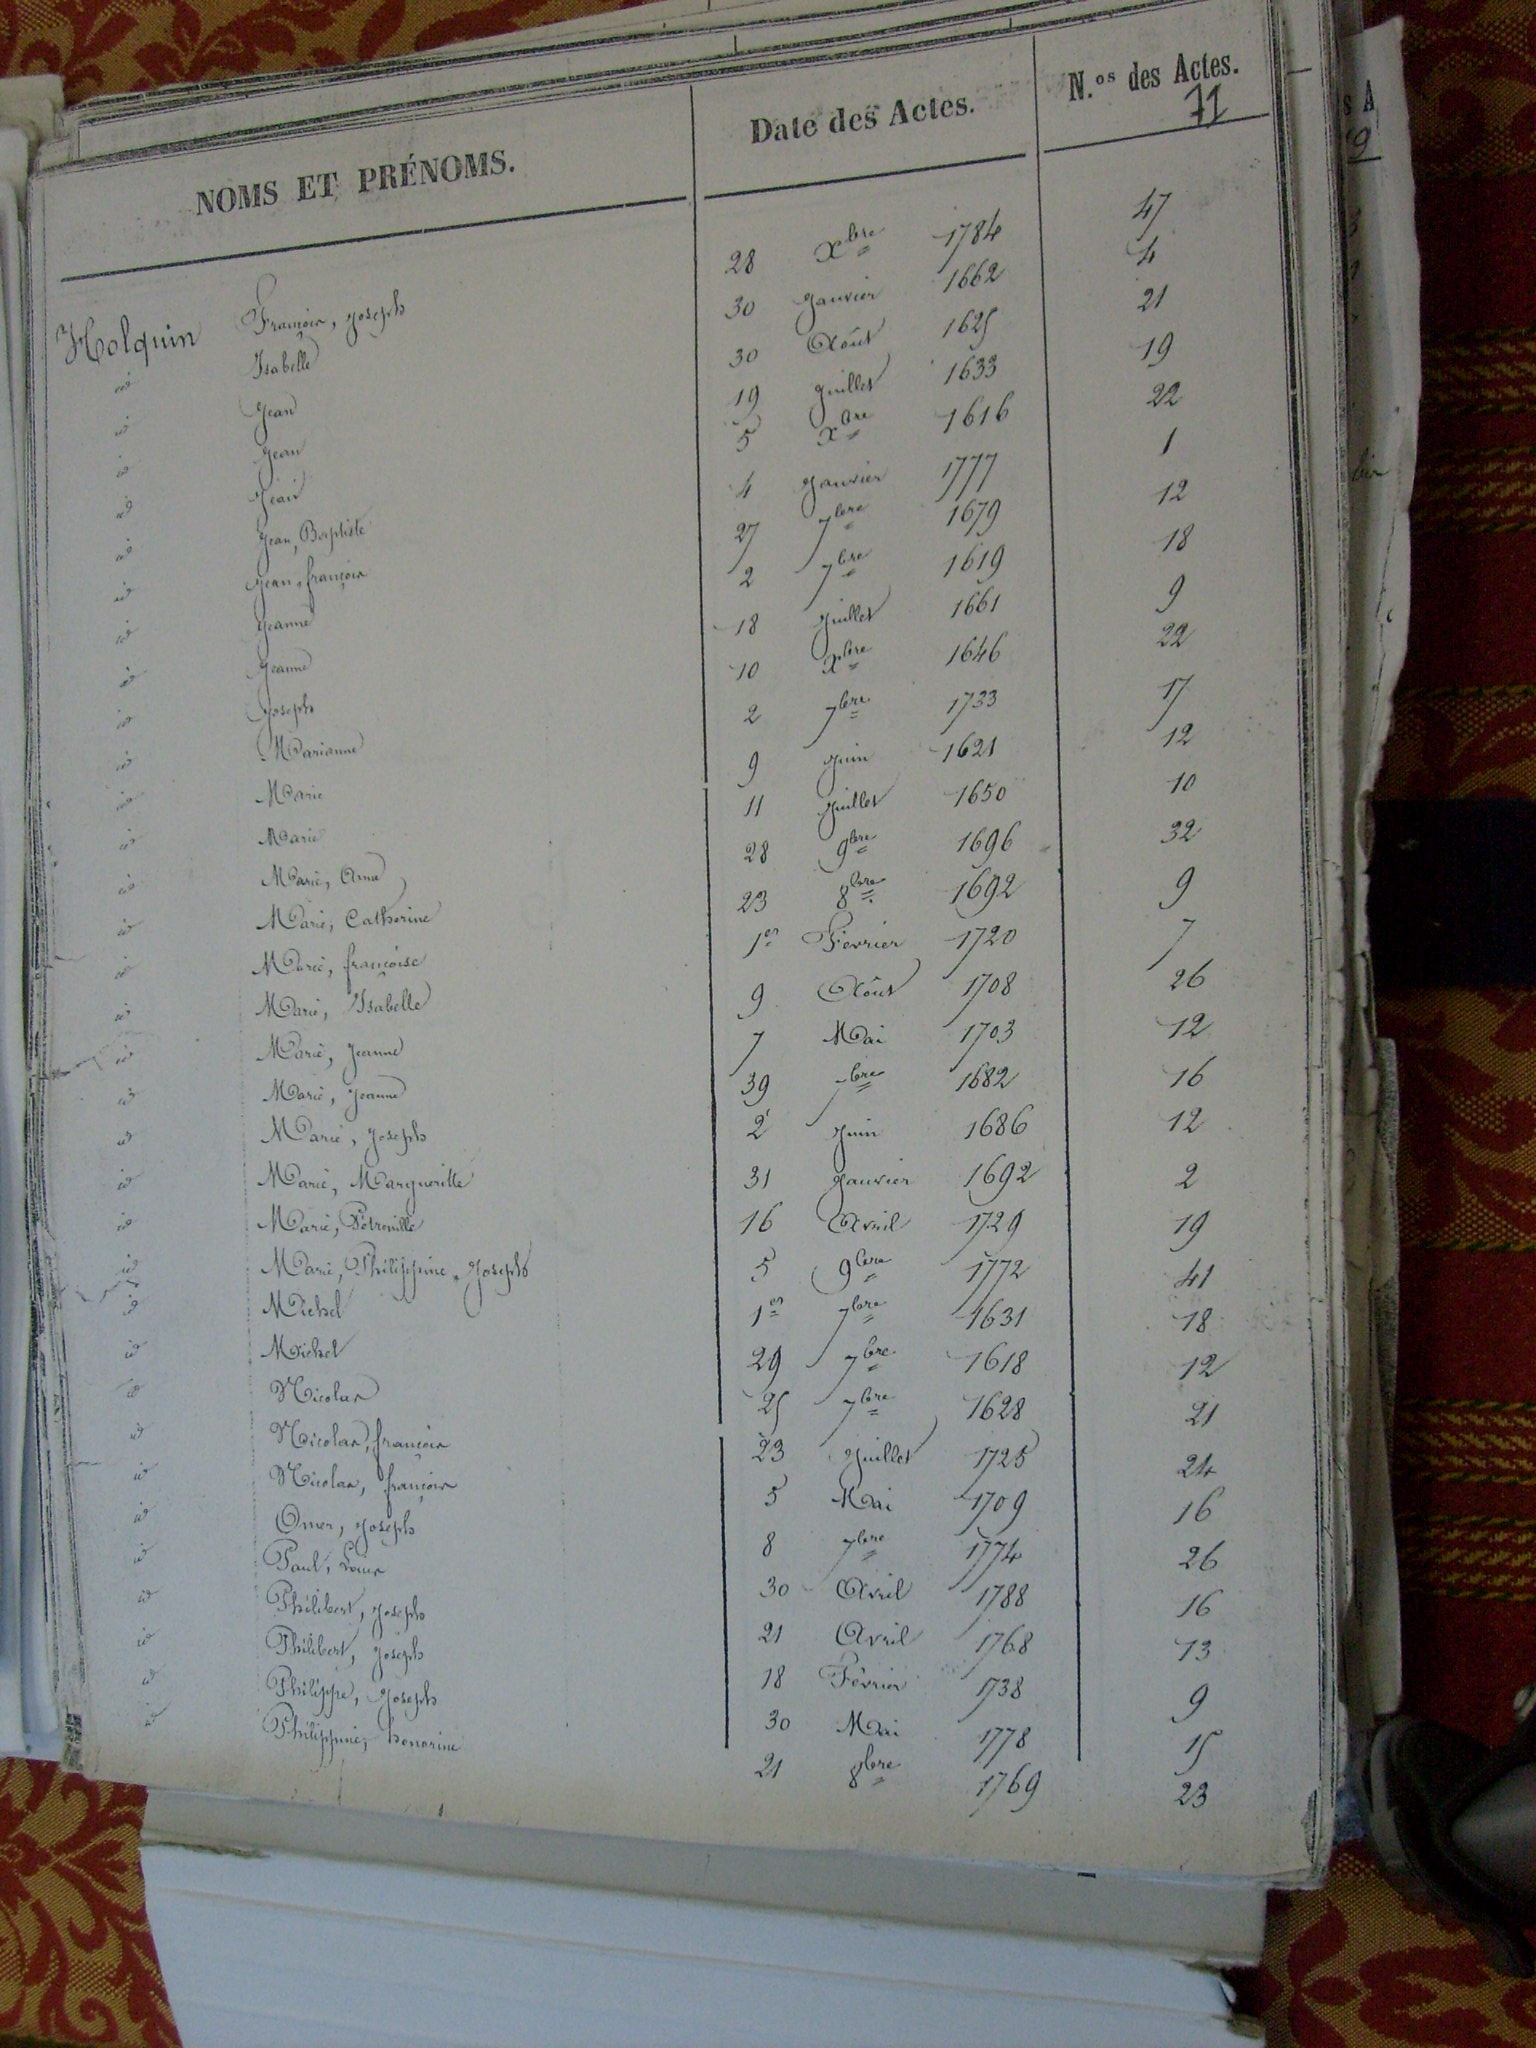 NOMS ET PRÉNOMS. Date des Actes. N.os des Actes.
71
Holquin François, Joseph 28 Xbre 1784 47
id Isabelle 30 Janvier 1662 4
id Jean 30 Août 1625 21
id Jean 19 Juillet 1633 19
id Jean 5 Xbre 1616 22
id Jean, Baptiste 4 Janvier 1777 1
id Jean, françois 27 7bre 1679 12
id Jeanne 2 7bre 1619 18
id Jeanne 18 Juillet 1661 9
id Joseph 10 Xbre 1646 22
id Marianne 2 7bre 1733 17
id Marie 9 Juin 1621 12
id Marie 11 Juillet 1650 10
id Marie, Anne 28 9bre 1696 32
id Marie, Catherine 23 8bre 1692 9
id Marie, françoise 1er Février 1720 7
id Marie, Isabelle 9 Août 1708 26
id Marie, Jeanne 7 Mai 1703 12
id Marie, Jeanne 39 7bre 1682 16
id Marie, Joseph 2 Juin 1686 12
id Marie, Marguerite 31 Janvier 1692 2
id Marie, Pétronille 16 Avril 1729 19
id Marie, Philippine, Joseph 5 9bre 1772 41
id Michel 1er 7bre 1631 18
id Michel 29 7bre 1618 12
id Nicolas 25 7bre 1628 21
id Nicolas, françois 23 Juillet 1725 24
id Nicolas, françois 5 Mai 1709 16
id Omer, Joseph 8 7bre 1774 26
id Paul, Louis 30 Avril 1788 16
id Philibert, Joseph 21 Avril 1768 13
id Philibert, Joseph 18 Février 1738 9
id Philippe, Joseph 30 Mai 1778 15
id Philippine, honorine 21 8bre 1769 23